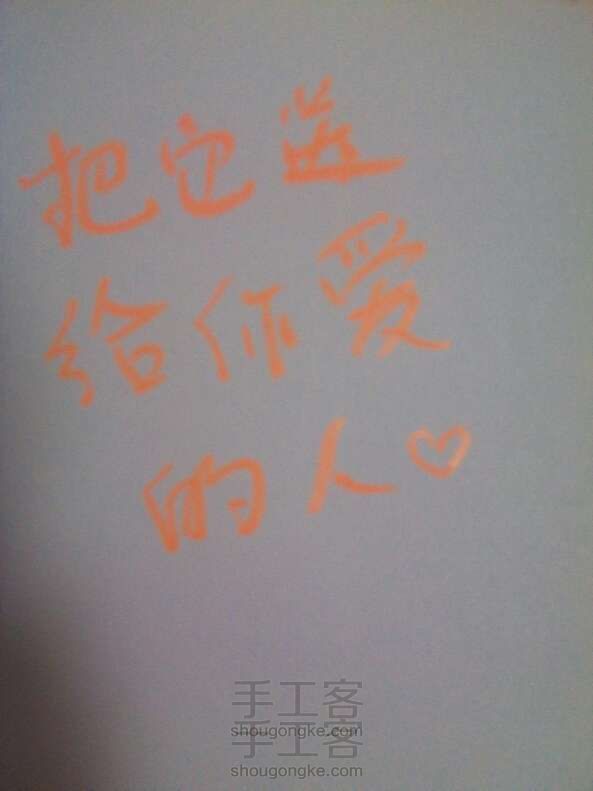 把它送
给你爱
的人♡
手工客
shougongke.com
手工客
shougongke.com